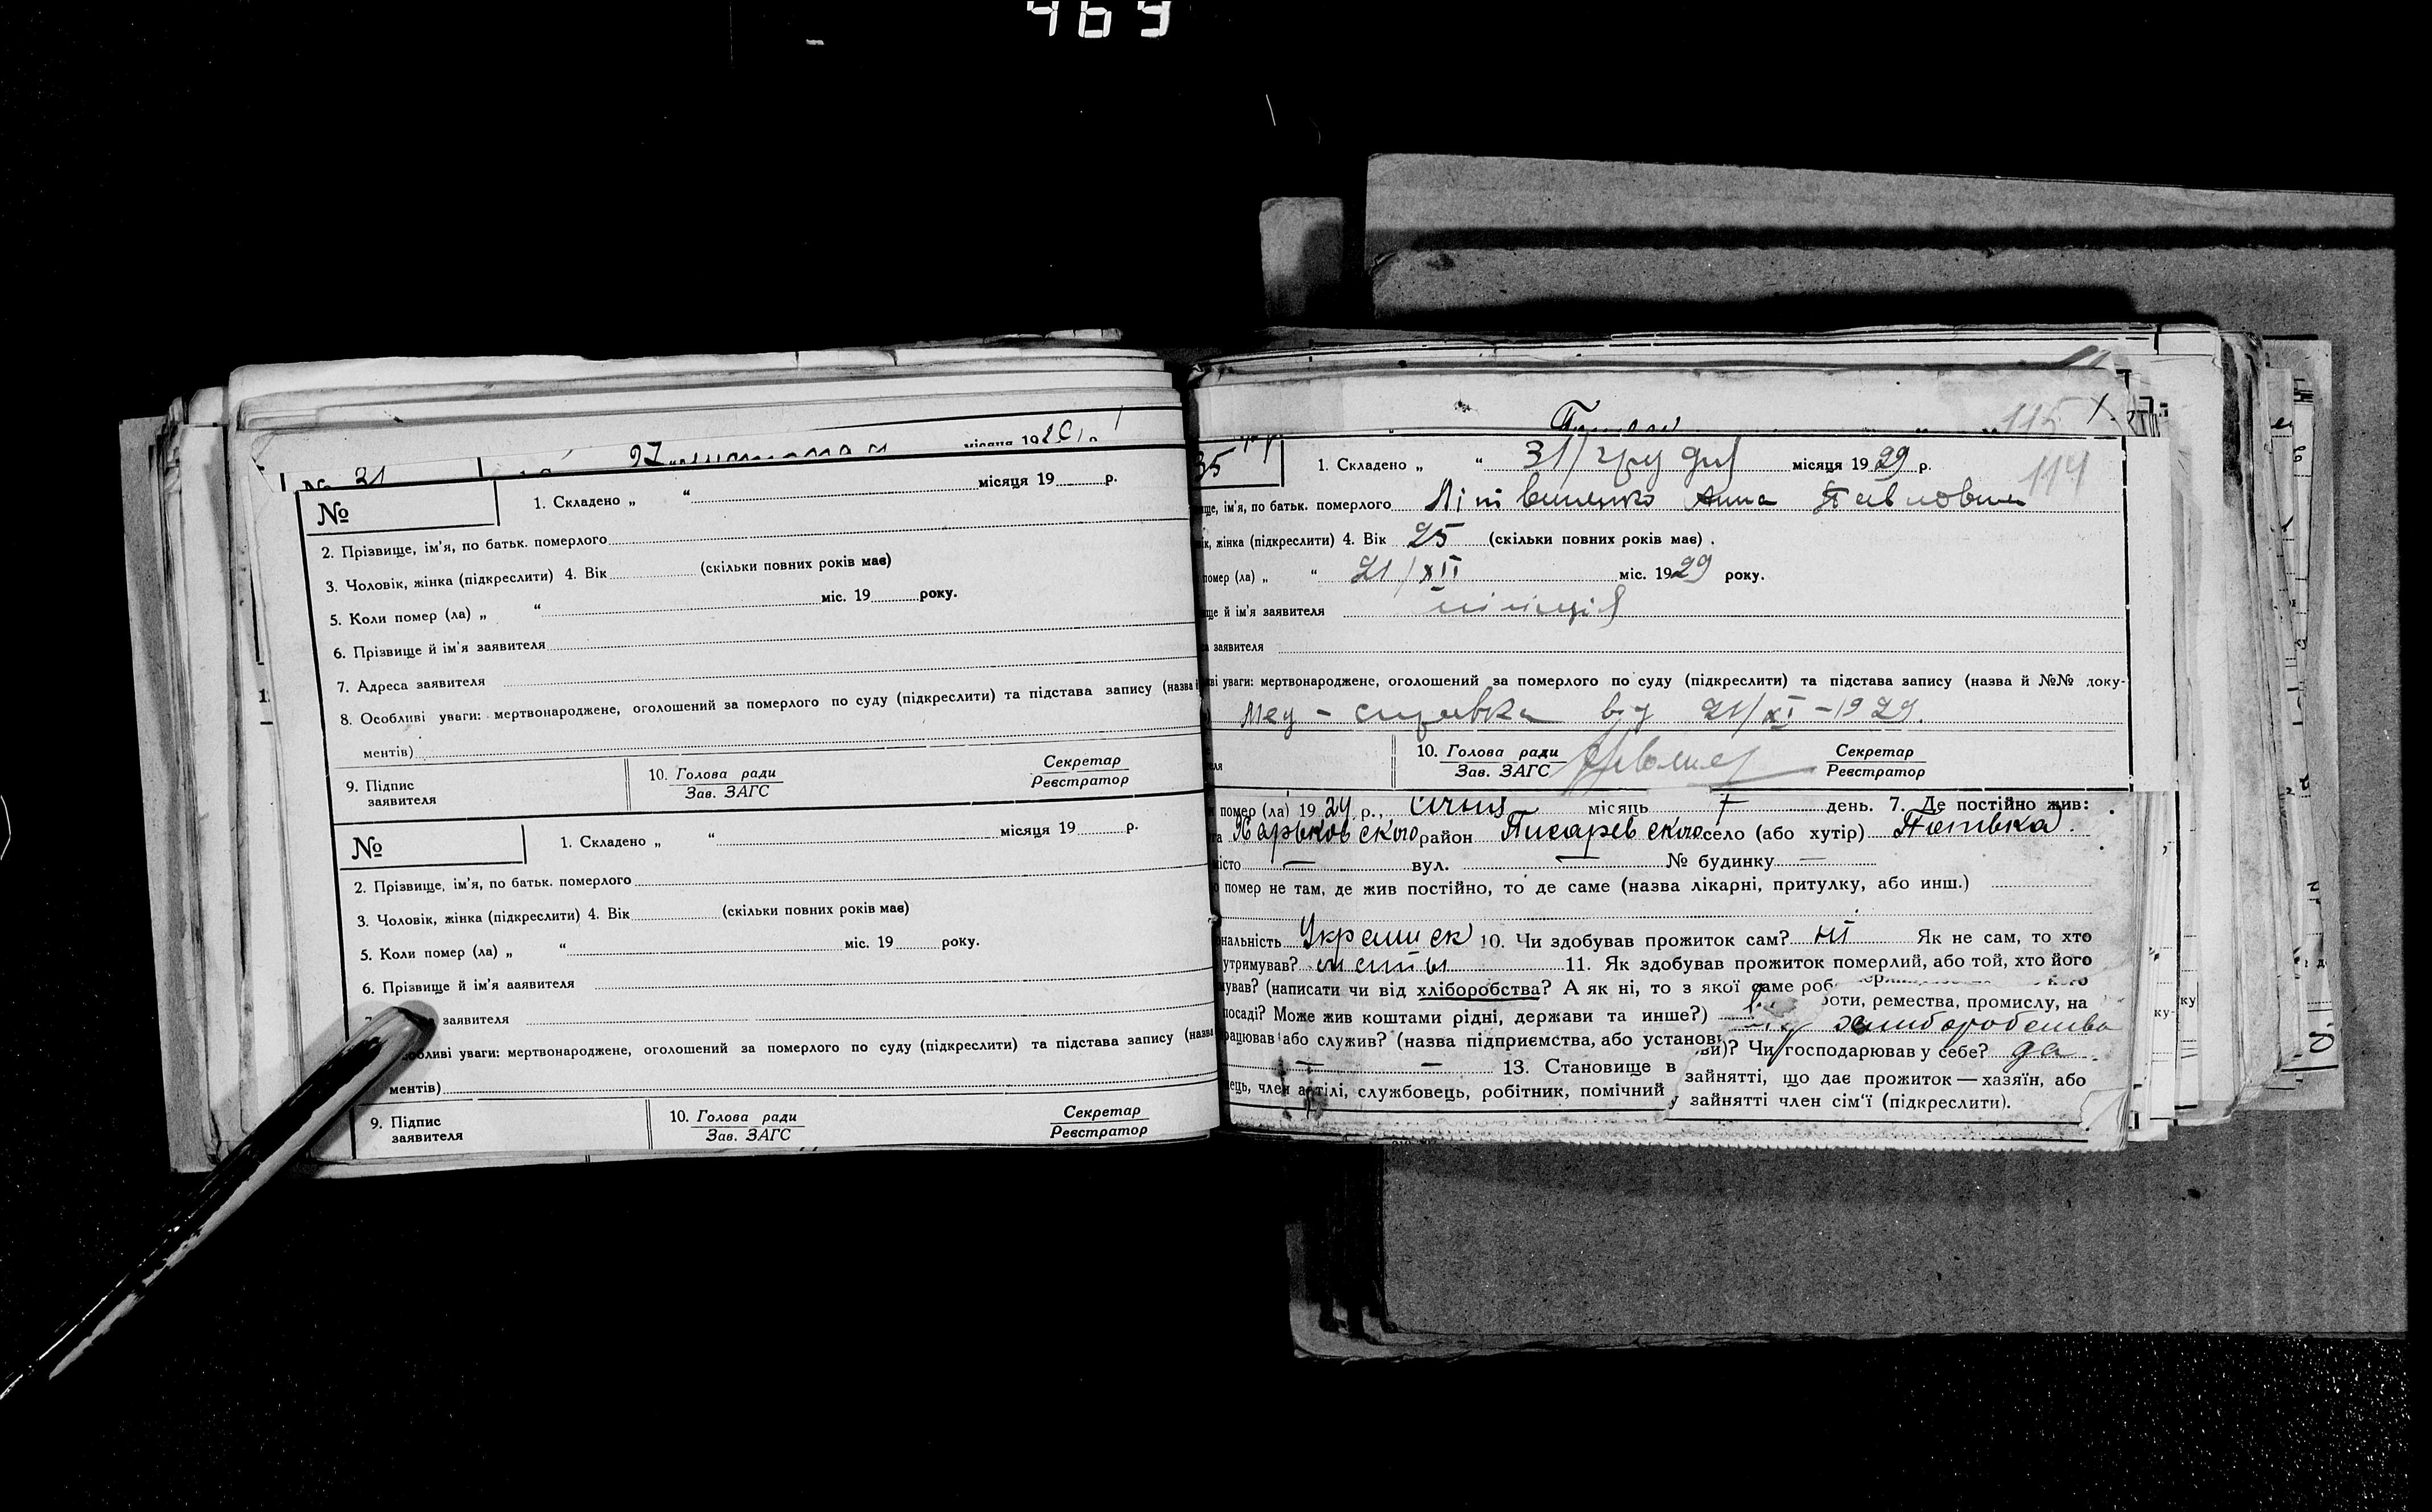 469
№ 31
місяця 19
№
1. Складено „ “ місяця 19 р.
2. Прізвище, ім'я, по батьк. померлого
3. Чоловік, жінка (підкреслити) 4. Вік (скільки повних років має)
5. Коли помер (ла) „ “ міс. 19 року.
6. Прізвище й ім'я заявителя
7. Адреса заявителя
8. Особливі уваги: мертвонароджене, оголошений за померлого по суду (підкреслити) та підстава запису (назва
ментів)
9. Підпис заявителя
10. Голова ради
Зав. ЗАГС
Секретар
Реєстратор
№
1. Складено „ “ місяця 19 р.
2. Прізвище, ім'я, по батьк. померлого
3. Чоловік, жінка (підкреслити) 4. Вік (скільки повних років має)
5. Коли помер (ла) „ “ міс. 19 року.
6. Прізвище й ім'я заявителя
заявителя
уваги: мертвонароджене, оголошений за померлого по суду (підкреслити) та підстава запису (назва
ментів)
9. Підпис заявителя
10. Голова ради
Зав. ЗАГС
Секретар
Реєстратор
115
35 1. Складено „ “ 31/грудня місяця 1929 р.
114
ім'я, по батьк. померлого Літвиненко Анна Павловна
жінка (підкреслити) 4. Вік 25 (скільки повних років має) .
помер (ла) „ “ 21/XII міс. 1929 року.
й ім'я заявителя міліція
заявителя
уваги: мертвонароджене, оголошений за померлого по суду (підкреслити) та підстава запису (назва й №№ доку-
Мед - справка від 21/XI - 1929.
10. Голова ради
Зав. ЗАГС
Секретар
Реєстратор
помер (ла) 1929 р., місяць 7 день. 7. Де постійно жив:
Харьковского район Писаревского село (або хутір)
вул. — № будинку —
помер не там, де жив постійно, то де саме (назва лікарні, притулку, або инш.)
10. Чи здобував прожиток сам? ні Як не сам, то хто
утримував? 11. Як здобував прожиток померлий, або той, хто його
(написати чи від хліборобства? А як ні, то з якої саме
роти, ремества, промислу, на
посаді? Може жив коштами рідні, держави та инше?)
або служив? (назва підприємства, або
Чи господарював у себе? да
— 13. Становище в
зайнятті, що дає прожиток — хазяїн, або
член артілі, службовець, робітник, помічний
у зайнятті член сім'ї (підкреслити).